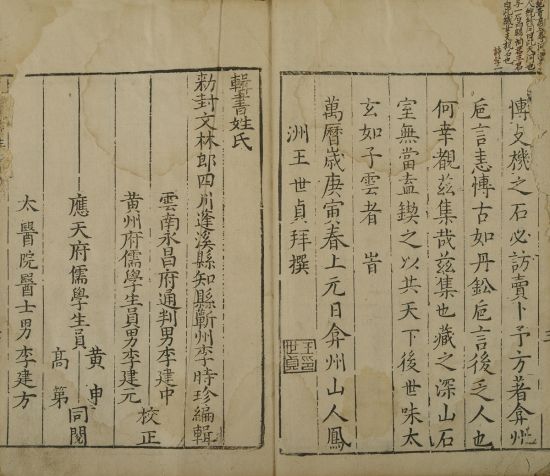 博支機之石必訪賣卜予方著弇州
巵言恚博古如丹鉛巵言後乏人也
何幸覩玆集哉玆集也藏之深山石
室無當盍鍥之以共天下後世味太
玄如子雲者 旹
萬曆歲庚寅春上元日弇州山人鳳
洲王世貞拜撰
輯書姓氏
勑封文林郎四川蓬溪縣知縣蘄州李時珍編輯
雲南永昌府通判男李建中
黃州府儒學生員男李建元
校正
應天府儒學生員
黃申
高第
同閱
太醫院醫士男李建方